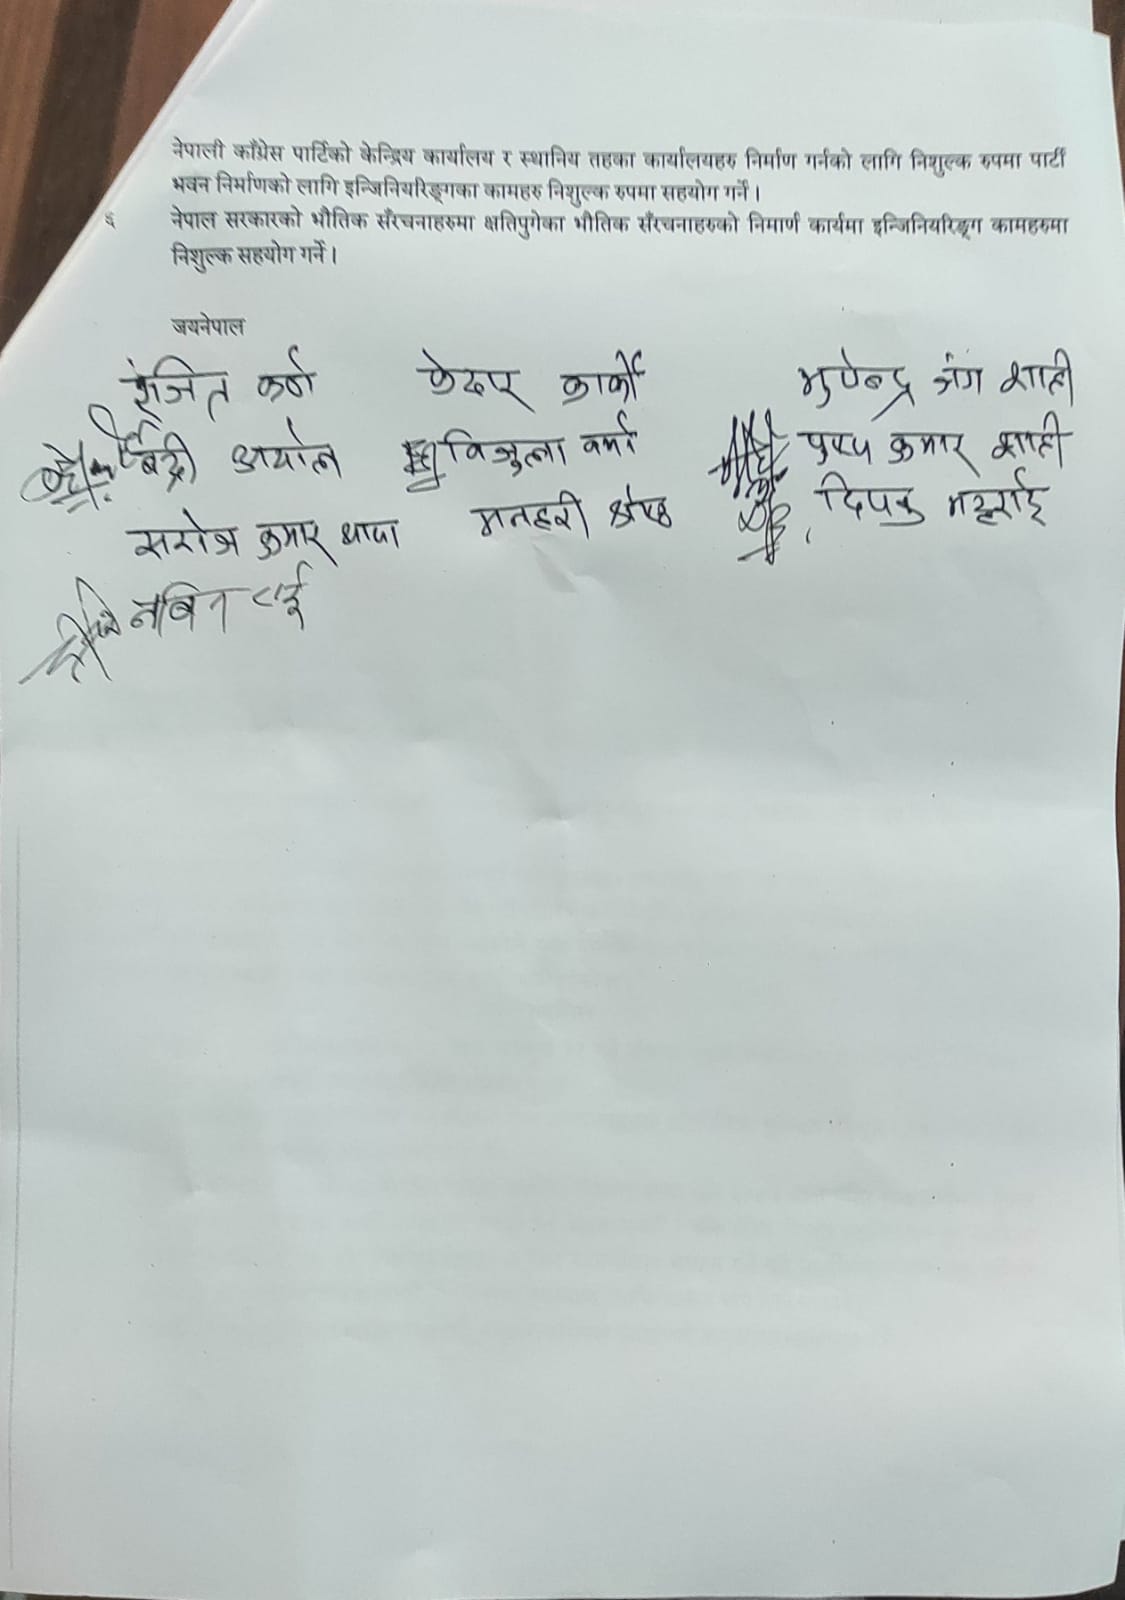 नेपाली काँग्रेस पार्टिको केन्द्रिय कार्यालय र स्थानिय तहका कार्यालयहरु निर्माण गर्नको लागि निशुल्क रुपमा पार्टी
भवन निर्माणको लागि इन्जिनियरिङ्गका कामहरु निशुल्क रुपमा सहयोग गर्ने ।
६ नेपाल सरकारको भौतिक सँरचनाहरुमा क्षतिपुगेका भौतिक सँरचनाहरुको निमार्ण कार्यमा इन्जिनियरिङ्ग कामहरुमा
निशुल्क सहयोग गर्ने ।
जयनेपाल
रंजित कर्ण केदार कार्की भुपेन्द्र जंग शाही
बद्री अर्याल विजुला वर्मा पुष्प कुमार शाही
सरोज कुमार थापा मनहरी श्रेष्ठ दिपक भट्टराई
नबिन राई